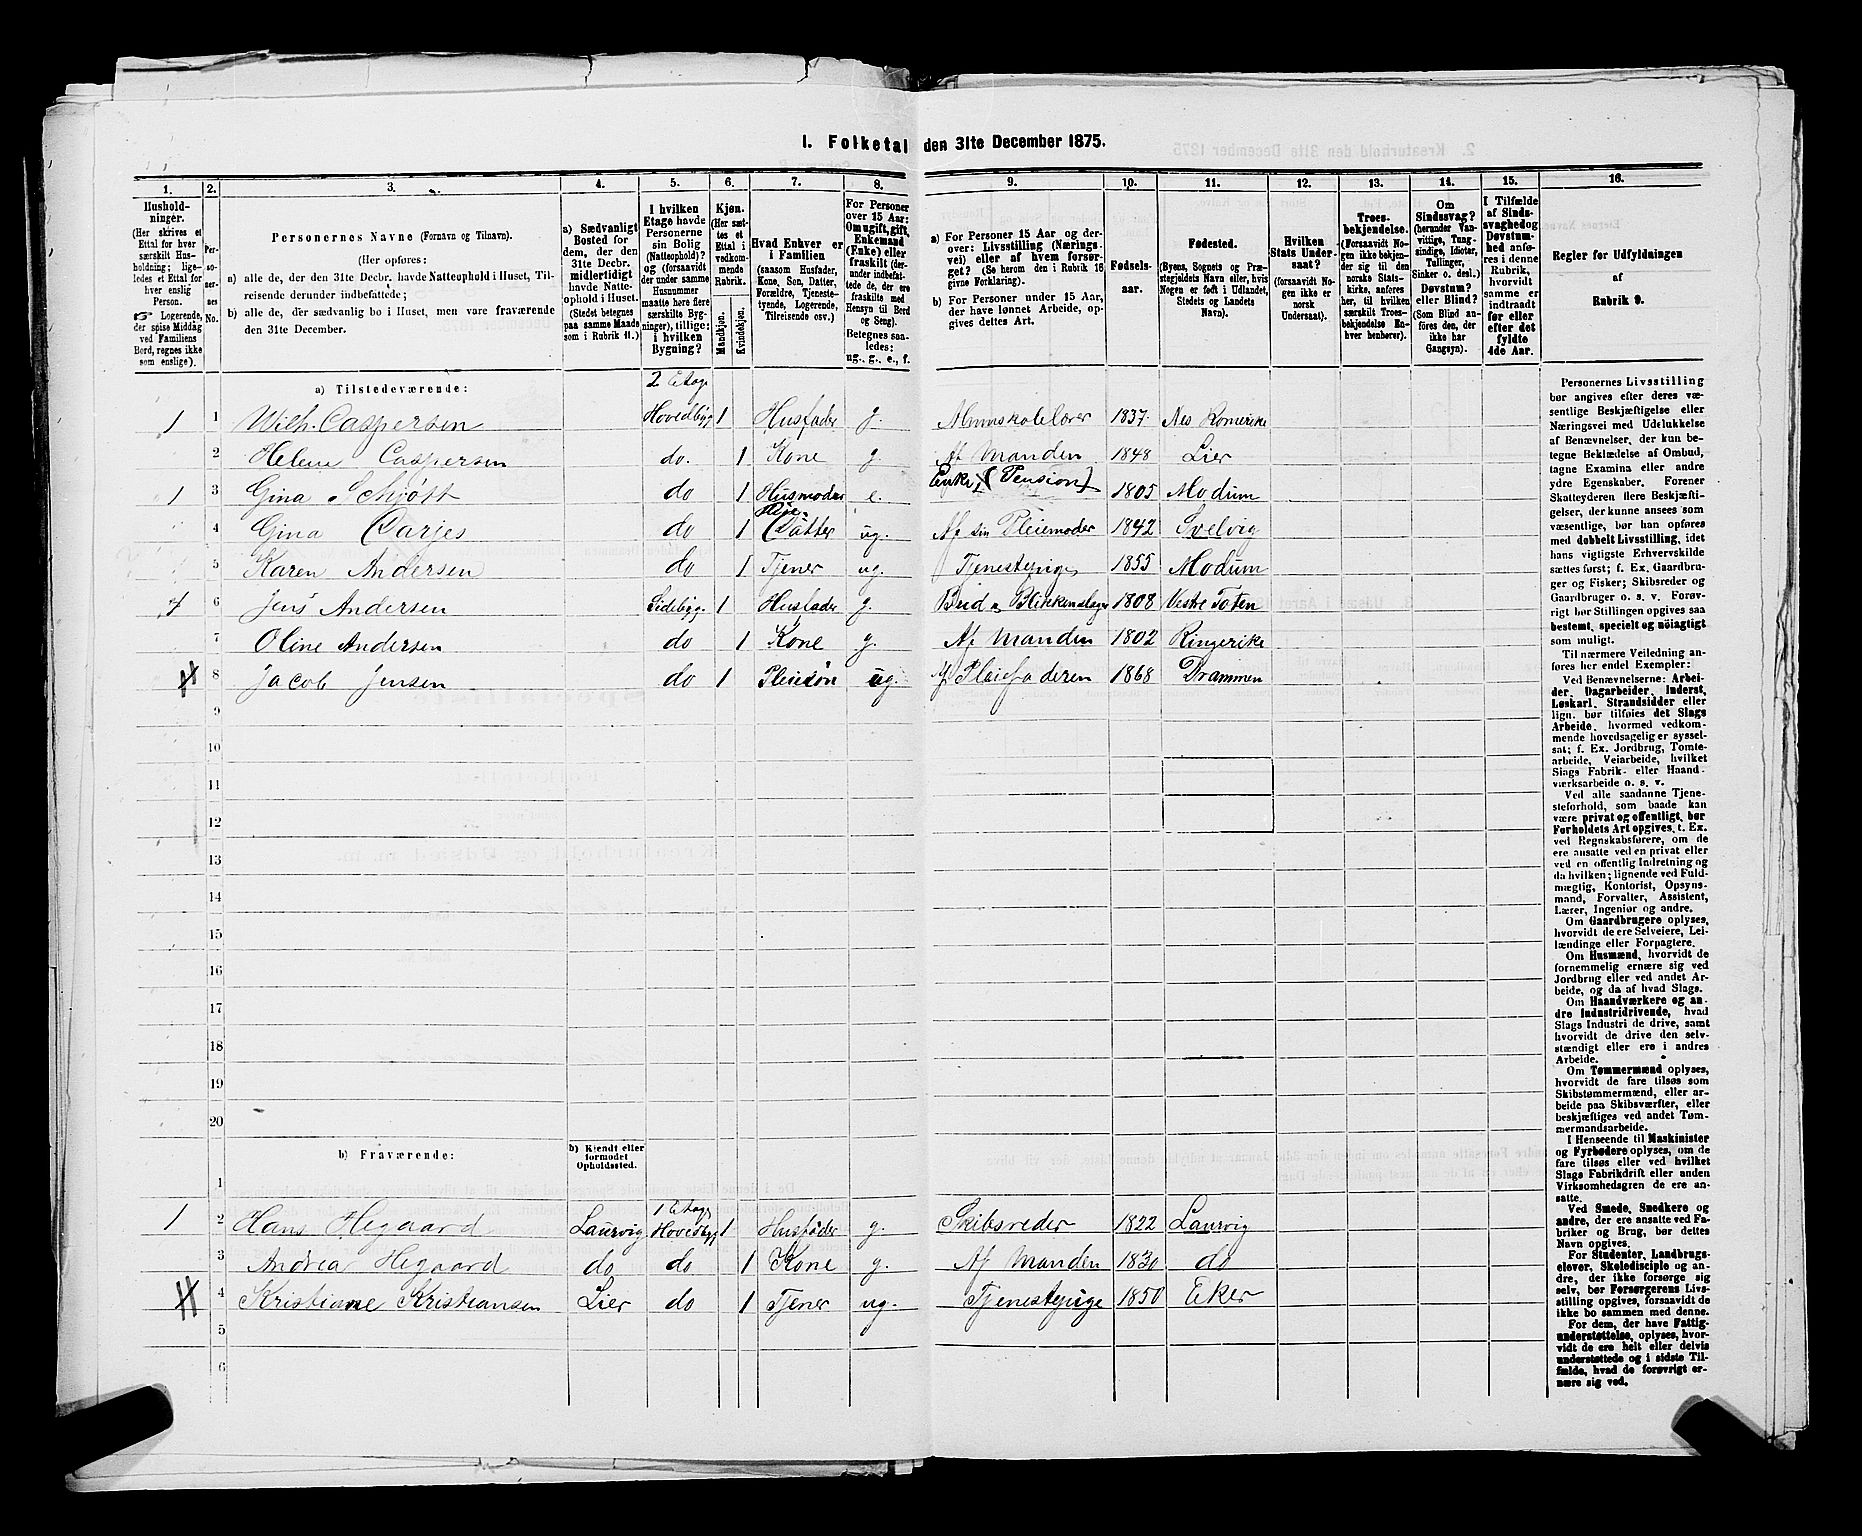 I. Folketal den 31te December 1875.
1. 2. 3. 4. 5. 6. 7. 8. 9. 10. 11. 12. 13. 14. 15. 16.
Hushold-
ninger.
(Her skrives et
Ettal for hver
særskilt Hus-
holdning; lige-
ledes et Ettal for
hver enslig
Person.
☞ Logerende,
der spise Middag
ved Familiens
Bord, regnes ikke
som enslige).
Per-
so-
ner-
nes
No.
Personernes Navne (Fornavn og Tilnavn).
(Her opføres:
a) alle de, der den 31te Decbr. havde Natteophold i Huset, Til-
reisende derunder indbefattede;
b) alle de, der sædvanlig bo i Huset, men vare fraværende
den 31te December.
a) Sædvanligt
Bosted for
dem, der den
31te Decbr.
midlertidigt
havde Natte-
ophold i Huset.
(Stedet betegnes
paa samme Maade
som i Rubrik 11.)
I hvilken
Etage havde
Personerne
sin Bolig
(Natteophold)?
og (forsaavidt
der under samme
Husnummer
maatte høre flere
særskilte Byg-
ninger), tillige:
i hvilken
Bygning?
Kjøn.
(Her sæt-
tes et
Ettal i
vedkom-
mende
Rubrik.
Mandkjøn.
Kvindekjøn.
Hvad Enhver er
i Familien
(saasom Husfader,
Kone, Søn, Datter,
Forældre, Tjeneste-
tyende, Logerende,
Tilreisende osv.)
For Personer
over 15 Aar:
Om ugift, gift,
Enkemand
(Enke) eller
fraskilt (der-
under indbefat-
tede de, der ere
fraskilte med
Hensyn til Bord
og Seng).
Betegnes saa-
ledes:
ug., g., e., f.
a) For Personer 15 Aar og der-
over: Livsstilling (Nærings-
vei) eller af hvem forsør-
get? (Se herom den i Rubrik 16
givne Forklaring).
b) For Personer under 15 Aar,
der have lønnet Arbeide, op-
gives dettes Art.
Fødsels-
aar.
Fødested.
(Byens, Sognets og Præ-
stegjeldets Navn eller, hvis
Nogen er født i Udlandet,
Stedets og Landets
Navn).
Hvilken
Stats Under-
saat?
(forsaavidt No-
gen ikke er
norsk
Undersaat).
Troes-
bekjendelse.
(Forsaavidt No-
gen ikke bekjen-
der sig til den
norske Stats-
kirke, anføres
her, til hvilken
særskilt Troes-
bekjendelse En-
hver henhører).
Om
Sindssvag?
(herunder Van-
vittige, Tung-
sindige, Idioter,
Tullinger,
Sinker o. desl.)
Døvstum?
eller Blind?
(Som Blind an-
føres den, der
ikke har
Gangsyn).
I Tilfælde
af Sinds-
svaghed og
Døvstum-
hed anfø-
res i denne
Rubrik,
hvorvidt
samme er
indtraadt
før eller
efter det
fyldte
4de Aar.
Regler for Udfyldningen
af
Rubrik 9.
a) Tilstedeværende: 2 Etage
1 1 Wilh. Caspersen Hovedbyg 1 Husfader g. Almuskolelærer 1837. Nes Romerike
2 Helene Caspersen do. 1 Kone g. Af Manden 1848 Lier
1 3 Gina Schjøtt do 1 Husmoder e. Enke (Pension) 1805 Modum
4 Gina Darjes do 1 Pleie-Datter ug. Af sin Pleiemoder 1842 Svelvig
5 Karen Andersen do 1 Tjener ug. Tjenestepige 1855 Modum
1 6 Jens Andersen Sidebyg. 1 Husfader g. Blikkenslager 1808 Vestre Toten
7 Oline Andersen do 1 Kone g. Af Manden 1802 Ringerike
8 Jacob Jensen do 1 Pleiesøn ug. Af Pleiefaderen 1868 Drammen
9
10
11
12
13
14
15
16
17
18
19
20
b) Fraværende: b) Kjendt eller
formodet
Opholdssted.
1
1 Etage
1 2 Hans Hegaard Laurvig Hovedbyg 1 Husfader g. Skibsreder 1822 Laurvig
3 Andrea Hegaard do do 1 Kone g. Af Manden 1830 do
4 Kristiane Kristiansen Lier do 1 Tjener ug. Tjenestepige 1850 Eker
5
6
Personernes Livsstilling
bør angives efter deres væ-
sentlige Beskjæftigelse eller
Næringsvei med Udelukkelse
af Benævnelser, der kun be-
tegne Beklædelse af Ombud,
tagne Examina eller andre
ydre Egenskaber. Forener
Skatteyderen flere Beskjæfti-
gelser, der kunne ansees som
væsentlige, bør han opføres
med dobbelt Livsstilling, idet
hans vigtigste Erhvervskilde
sættes først; f. Ex. Gaardbru-
ger og Fisker; Skibsreder og
Gaardbruger o. s. v. Forøv-
rigt bør Stillingen opgives saa
bestemt, specielt og nöiagtigt
som muligt.
Til nærmere Veiledning an-
føres her endel Exempler:
Ved Benævnelserne: Arbei-
der, Dagarbeider, Inderst,
Løskarl, Strandsidder eller
lign. bør tilføies det Slags
Arbeide, hvormed vedkom-
mende hovedsagelig er syssel-
sat; f. Ex. Jordbrug, Tomte-
arbeide, Veiarbeide, hvilket
Slags Fabrik- eller Haand-
værksarbeide o. s. v.
Ved alle saadanne Tjene-
steforhold, som baade kan
være privat og offentligt, bør
Forholdets Art opgives, t. Ex.
ved Regnskabsførere, om de
ere ansatte ved en privat eller
ved en offentlig Indretning og
da hvilken; lignende ved Fuld-
mægtig, Kontorist, Opsyns-
mand, Forvalter, Assistent,
Lærer, Ingeniør og andre.
Om Gaardbrugere oplyses,
hvorvidt de ere Selveiere, Lei-
lændinge eller Forpagtere.
Om Husmænd, hvorvidt de
fornemmelig ernære sig ved
Jordbrug eller ved andet Ar-
beide, og da af hvad Slags.
Om Haandværkere og an-
dre Industridrivende, hvad
Slags Industri de drive, samt
hvorvidt de drive den selv-
stændigt eller ere i andres
Arbeide.
Om Tømmermænd oplyses,
hvorvidt de fare tilsøs som
Skibstømmermænd, eller ar-
beide paa Skibsværfter, eller
beskjæftiges ved andet Tøm-
mermandsarbeide.
I Henseende til Maskinister
og Fyrbødere oplyses, om de
fare tilsøs eller ved hvilket
Slags Fabrikdrift eller anden
Virksomhedsgren de ere an-
satte.
Ved Smede, Snedkere og
andre, der ere ansatte ved Fa-
briker og Brug, bør dettes
Navn opgives.
For Studenter, Landbrugs-
elever, Skoledisciple og an-
dre, der ikke forsørge sig
selv, bør Forsørgerens Livs-
stilling opgives, forsaavidt de
ikke bo sammen med denne.
For dem, der have Fattig-
understøttelse, oplyses, hvor-
vidt de ere helt eller delvis
understøttede og i sidste Til-
fælde, hvad de forøvrigt er-
nære sig ved.